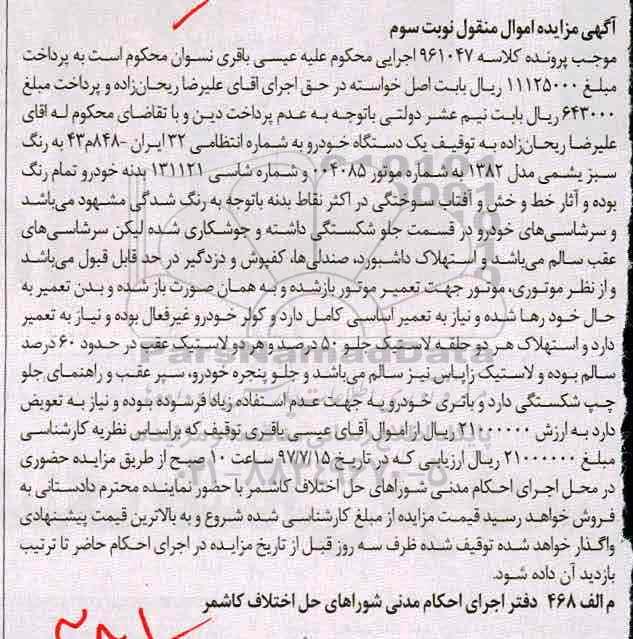 آگهی مزایده اموال منقول نوبت سوم
موجب پرونده کلاسه ۹۶۱۰۴۷ اجرایی محکوم علیه عیسی باقری نسوان محکوم است به پرداخت
مبلغ ۱۱۱۲۵۰۰۰ ریال بابت اصل خواسته در حق اجرای اقای علیرضا ریحان‌زاده و پرداخت مبلغ
۶۴۳۰۰۰ ریال بابت نیم عشر دولتی باتوجه به عدم پرداخت دین و با تقاضای محکوم له اقای
علیرضا ریحان‌زاده به توقیف یک دستگاه خودرو به شماره انتظامی ۳۲ ایران -۸۴۸م۴۳ به رنگ
سبز یشمی مدل ۱۳۸۲ به شماره موتور ۰۰۴۰۸۵ و شماره شاسی ۱۳۱۱۲۱ بدنه خودرو تمام رنگ
بوده و آثار خط و خش و آفتاب سوختگی در اکثر نقاط بدنه باتوجه به رنگ شدگی مشهود می‌باشد
و سرشاسی‌های خودرو در قسمت جلو شکستگی داشته و جوشکاری شده لیکن سرشاسی‌های
عقب سالم می‌باشد و استهلاک داشبورد، صندلی‌ها، کفپوش و دزدگیر در حد قابل قبول می‌باشد
و از نظر موتوری، موتور جهت تعمیر موتور بازشده و به همان صورت باز شده و بدن تعمیر به
حال خود رها شده و نیاز به تعمیر اساسی کامل دارد و کولر خودرو غیرفعال بوده و نیاز به تعمیر
دارد و استهلاک هر دو حلقه لاستیک جلو ۵۰ درصد و هر دو لاستیک عقب در حدود ۶۰ درصد
سالم بوده و لاستیک زاپاس نیز سالم می‌باشد و جلو پنجره خودرو، سپر عقب و راهنمای جلو
چپ شکستگی دارد و باتری خودرو به جهت عدم استفاده زیاد فرسوده بوده و نیاز به تعویض
دارد به ارزش ۲۱۰۰۰۰۰۰ ریال از اموال آقای عیسی باقری توقیف که براساس نظریه کارشناسی
مبلغ ۲۱۰۰۰۰۰۰ ریال ارزیابی که در تاریخ ۹۷/۷/۱۵ ساعت ۱۰ صبح از طریق مزایده حضوری
در محل اجرای احکام مدنی شوراهای حل اختلاف کاشمر با حضور نماینده محترم دادستانی به
فروش خواهد رسید قیمت مزایده از مبلغ کارشناسی شده شروع و به بالاترین قیمت پیشنهادی
واگذار خواهد شده توقیف شده ظرف سه روز قبل از تاریخ مزایده در اجرای احکام حاضر تا ترتیب
بازدید آن داده شود.
م الف ۴۶۸ دفتر اجرای احکام مدنی شوراهای حل اختلاف کاشمر
ParsNamadData
۰۲۱-۸۸۳۴۹۶۷۰-۵